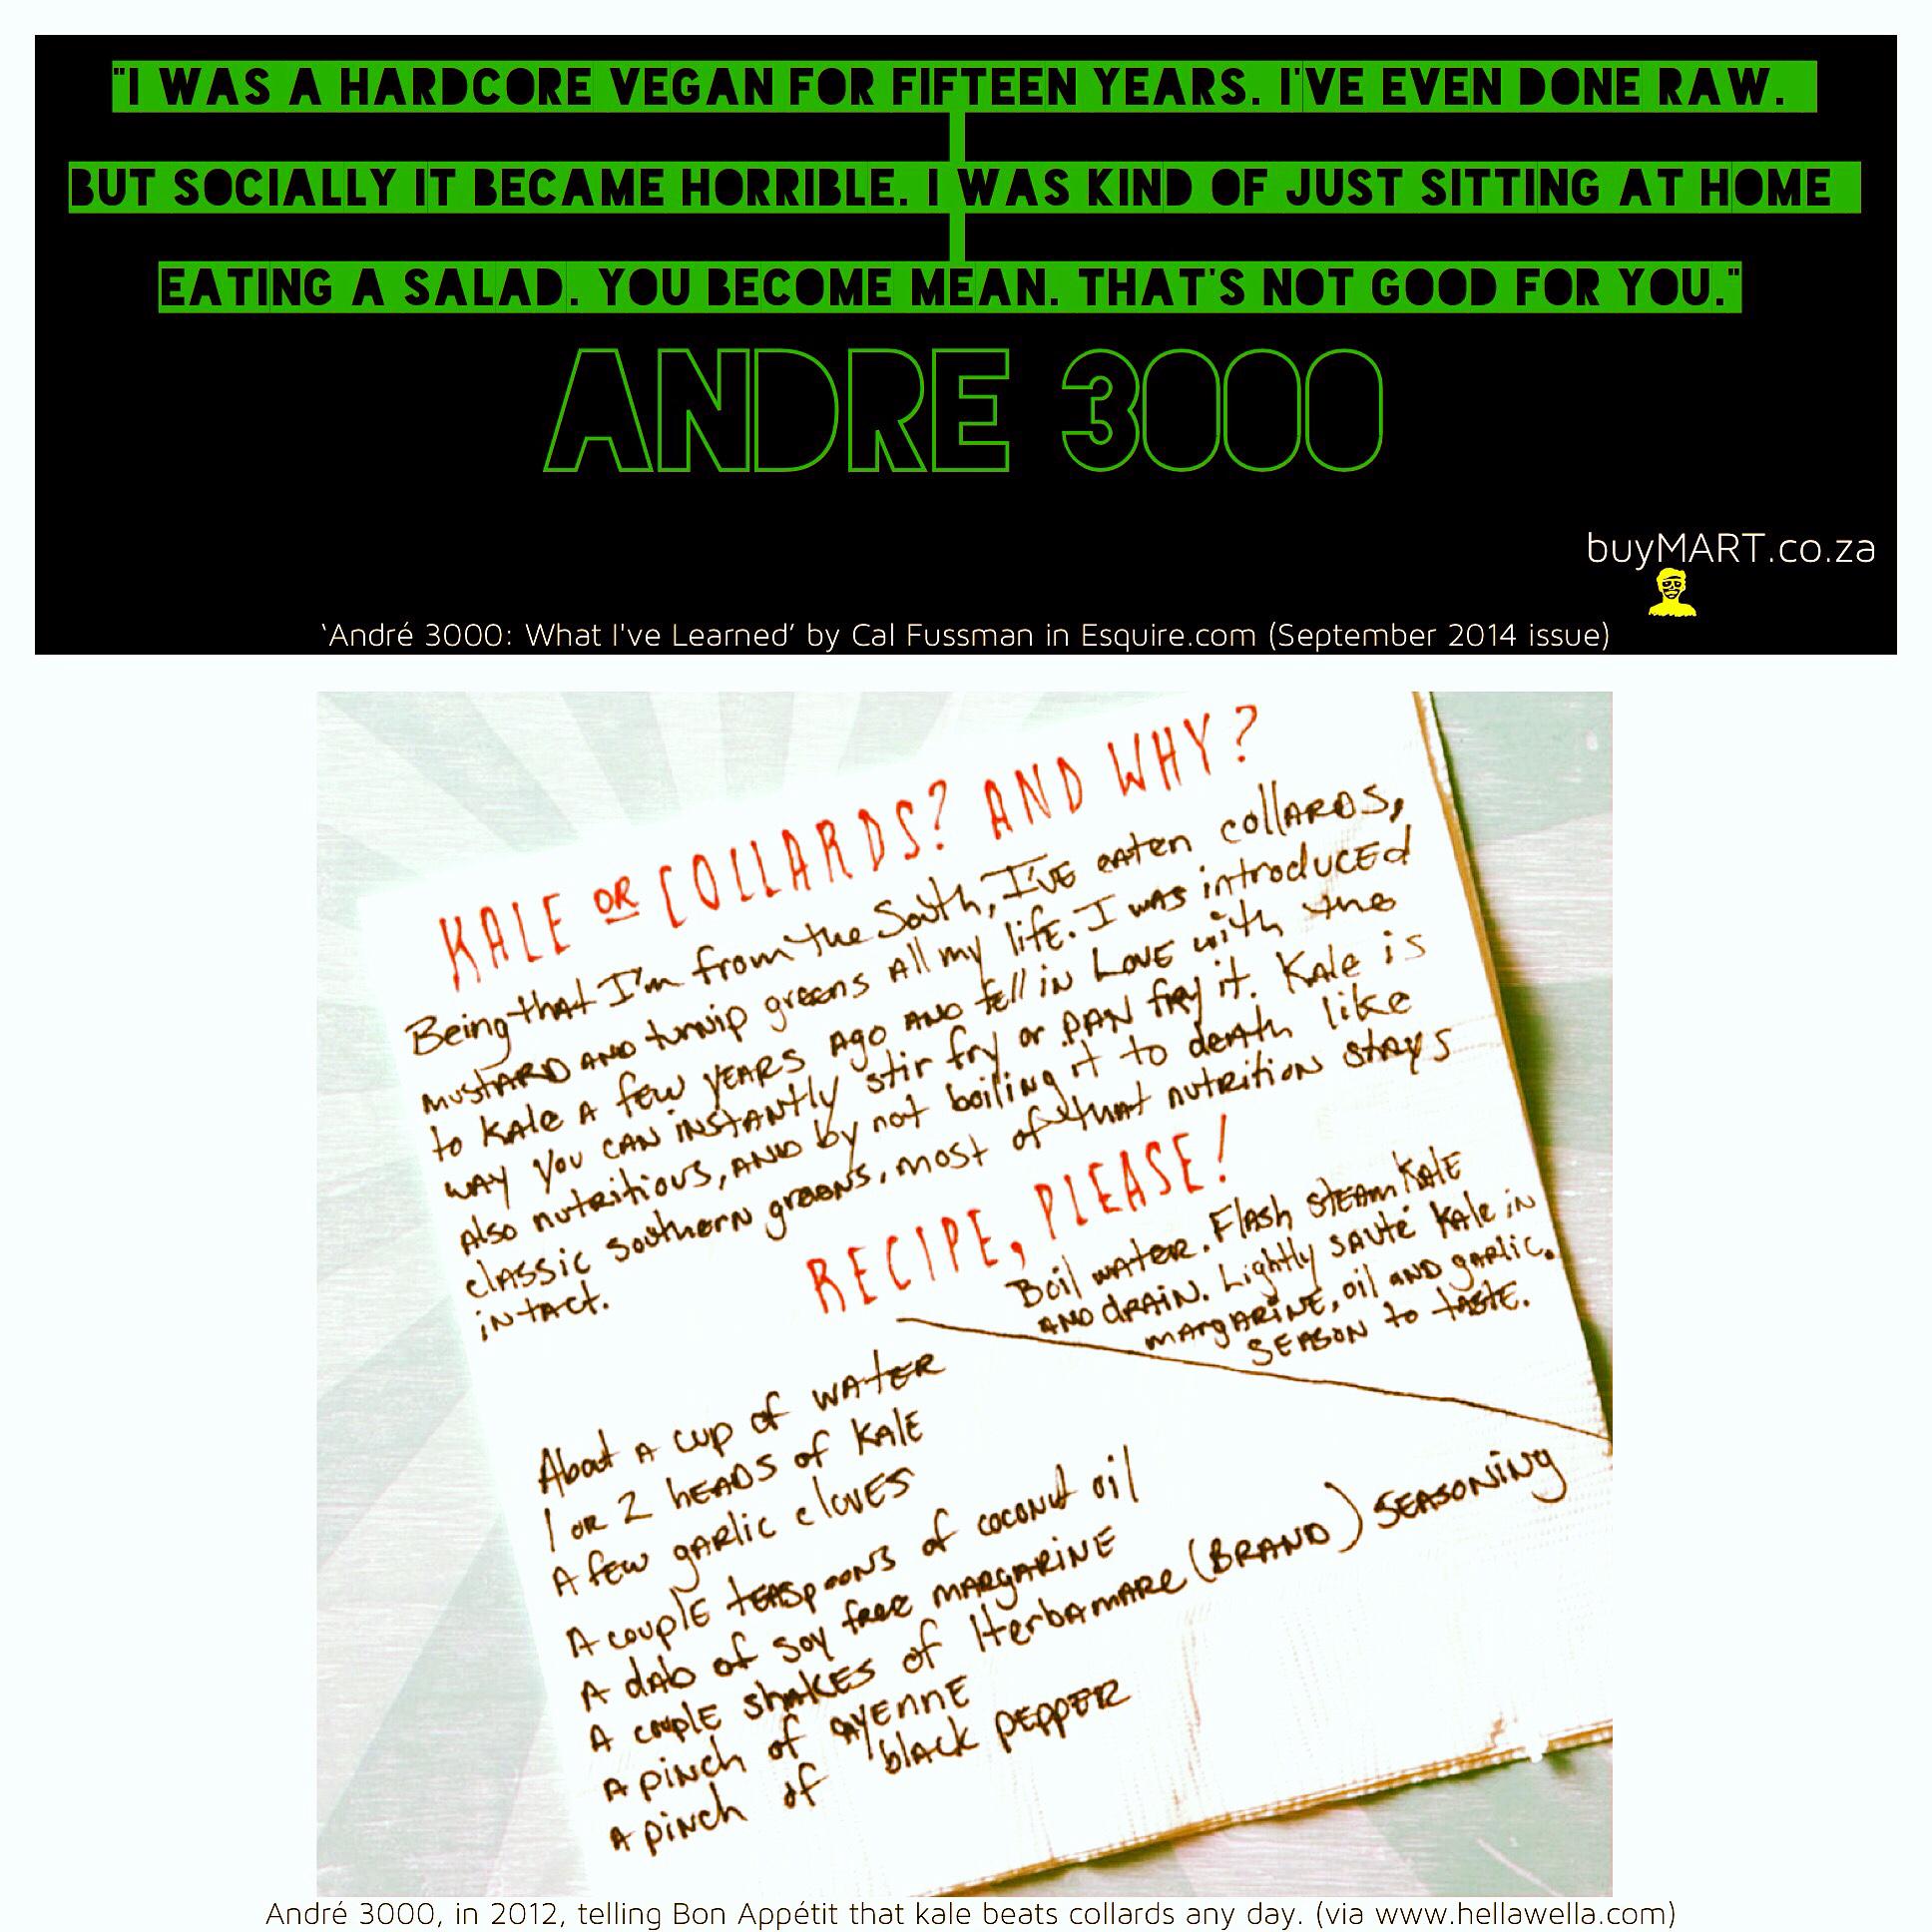 "I WAS A HARDCORE VEGAN FOR FIFTEEN YEARS. I'VE EVEN DONE RAW.
BUT SOCIALLY IT BECAME HORRIBLE. I WAS KIND OF JUST SITTING AT HOME
EATING A SALAD. YOU BECOME MEAN. THAT'S NOT GOOD FOR YOU."
ANDRE 3000
buyMART.co.za
‘André 3000: What I've Learned’ by Cal Fussman in Esquire.com (September 2014 issue)
KALE OR COLLARDS? AND WHY?
Being that I'm from the South, I've eaten collards,
mustard and turnip greens all my life. I was introduced
to kale a few years ago and fell in love with the
way you can instantly stir fry or pan fry it. Kale is
also nutritious, and by not boiling it to death like
classic southern greens, most of that nutrition stays
intact.
RECIPE, PLEASE!
Boil water. Flash steam kale
and drain. Lightly sauté kale in
margarine, oil and garlic.
Season to taste.
About a cup of water
1 or 2 heads of kale
A few garlic cloves
A couple teaspoons of coconut oil
A dab of soy free margarine
A couple shakes of Herbamare (Brand) seasoning
A pinch of cayenne
A pinch of black pepper
André 3000, in 2012, telling Bon Appétit that kale beats collards any day. (via www.hellawella.com)